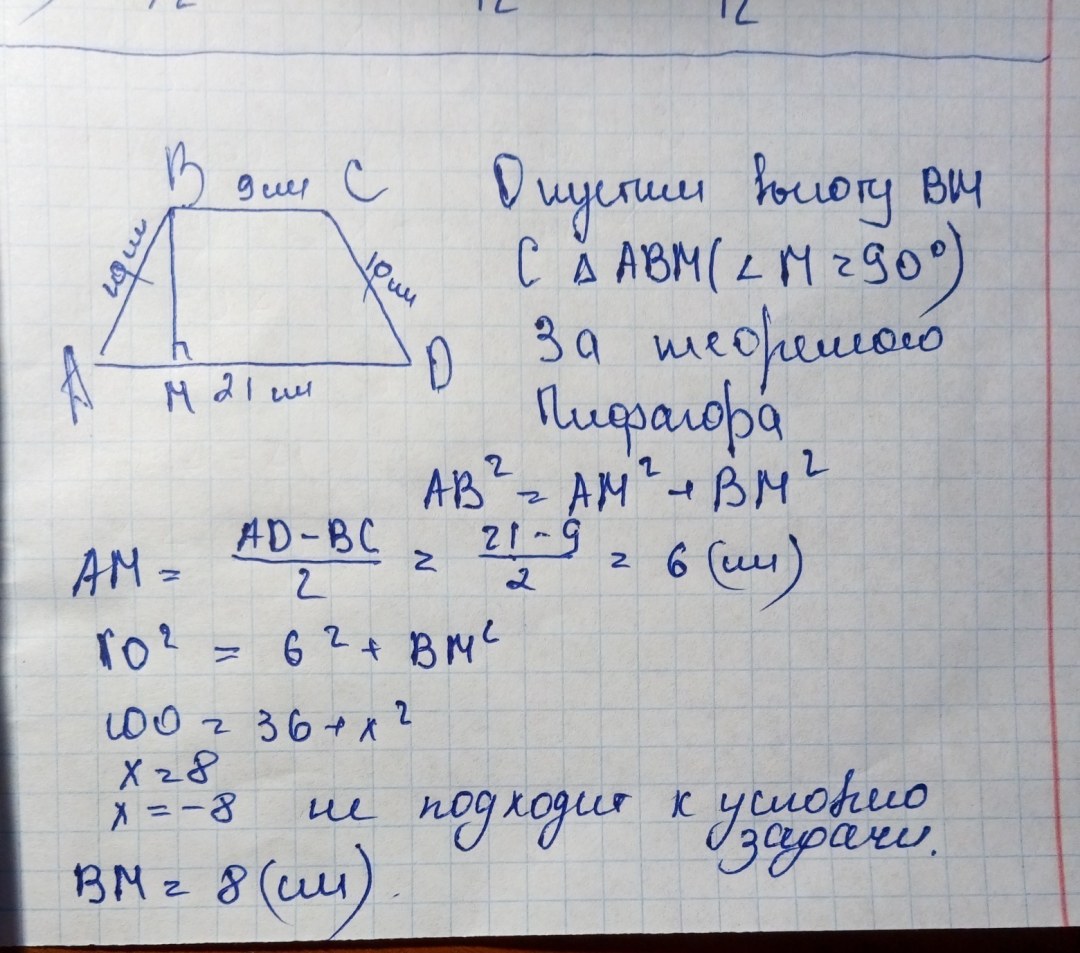 12 12 12
B 9см C
10см 10см
A M 21 см D
Опустим высоту BM
С Δ ABM (∠ M = 90°)
За теоремою
Пифагора
AB² = AM² + BM²
AM = AD - BC / 2 = 21 - 9 / 2 = 6 (см)
10² = 6² + BM²
100 = 36 + x²
x = 8
x = -8 не подходит к условию
задачи.
BM = 8 (см).